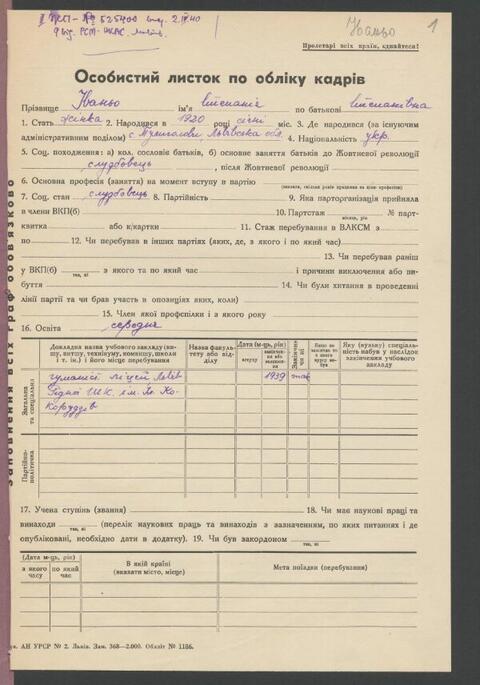 525400 2.IV.40
Каньо 1
Пролетарі всіх країн, єднайтеся!
Особистий листок по обліку кадрів
Прізвище ім'я по батькові
1. Стать жінка 2. Народився в 1920 році січні міс. 3. Де народився (за існуючим
адміністративним поділом) с. Львівська обл. 4. Національність укр.
5. Соц. походження: а) кол. сословіє батьків, б) основне заняття батьків до Жовтневої революції
службовець, після Жовтневої революції
6. Основна професія (заняття) на момент вступу в партію
(вказати, скільки років працював за цією професією)
7. Соц. стан службовець 8. Партійність 9. Яка парторганізація прийняла
в члени ВКП(б) 10. Партстаж № парт-
місяць, рік
квитка або к/картки 11. Стаж перебування в ВЛКСМ з
по 12. Чи перебував в інших партіях (яких, де, з якого і по який час)
13. Чи перебував раніш
у ВКП(б) з якого та по який час і причини виключення або ви-
так, ні
буття 14. Чи були хитання в проведенні
лінії партії та чи брав участь в опозиціях яких, коли)
15. Член якої профспілки і з якого року
16. Освіта середня
Докладна назва учбового закладу (ви-
шу, втишу, технікуму, комвишу, школи
і т. ін.) і його місце перебування
Назва факуль-
тету або від-
ділу
Дата (м-ць, рік)
вступу
закінчен-
ня або
залишен-
ня
Закінчив
чи ні
Якщо не
закінчив то
з якого
курсу вибув
Яку (вузьку) спеціаль-
ність набув у наслідок
закінчення учбового
закладу
Загальна
та спеціальна
ліцей Львів 1939 так
Рідної Шк. ім. Ко-
Партійно-
політична
заповнення всіх граф обов'язково
17. Учена ступінь (звання) 18. Чи має наукові праці та
винаходи (перелік наукових праць та винаходів з зазначенням, по яких питаннях і де
так, ні
опубліковані, необхідно дати в додатку). 19. Чи був закордоном
так, ні
(Дата м-ць, рік)
з якого
часу
по який
час
В якій країні
(вказати місто, місце)
Мета поїздки (перебування)
АН УРСР № 2. Львів. Зам. 368—2.000. Обліт № 1186.